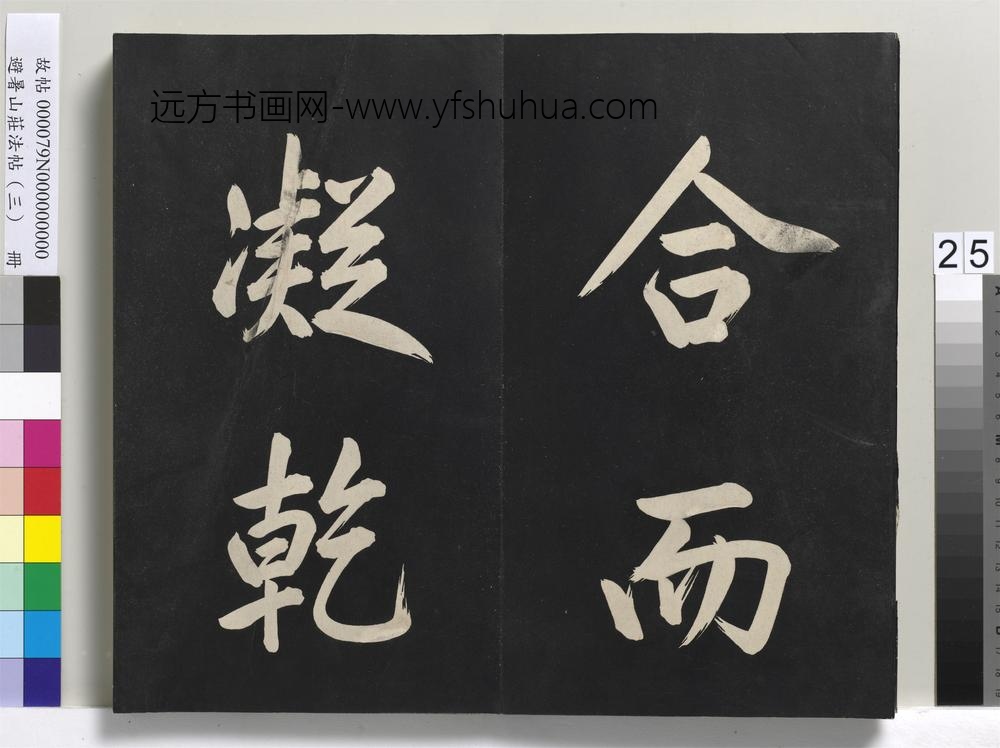 合而
凝乾
远方书画网-www.yfshuhua.com
故帖 000079N000000000
避暑山莊法帖（三） 冊
25